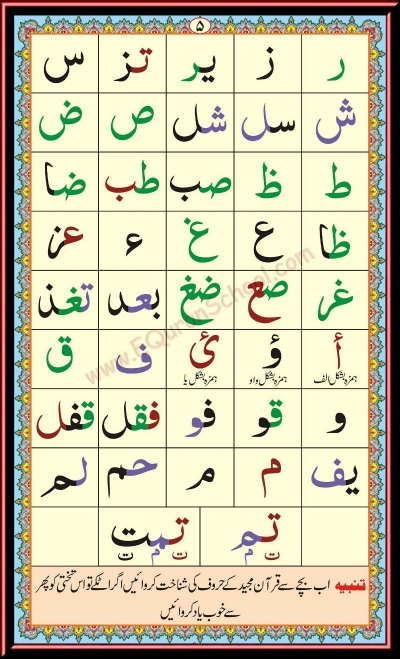 ۵
ر ز یر تز س
ش سل شل ص ض
ط ظ صب طب ضا
ظا ع غ ء عز
غر صع ضغ بعد تغذ
أ ؤ ئ ف ق
ہمزہ بشکل الف ہمزہ بشکل واو ہمزہ بشکل یا
و قو فو فقل قفل
یف م م حم لم
تم تمت
ت م ت م ت
تنبیہ اب بچے سے قرآن مجید کے حروف کی شناخت کروائیں اگر اٹکے تو اس تختی کو پھر
سے خوب یاد کروائیں
www.FQuranSchool.com